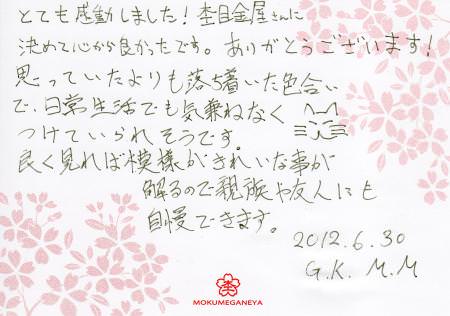 とても感動しました！杢目金屋さんに
決めて心から良かったです。ありがとうございます！
思っていたよりも落ち着いた色合い
で、日常生活でも気兼ねなく
つけていられそうです。
良く見れば模様がきれいな事が
解るので親族や友人にも
自慢できます。
2012.6.30
G.K. M.M
MOKUMEGANEYA